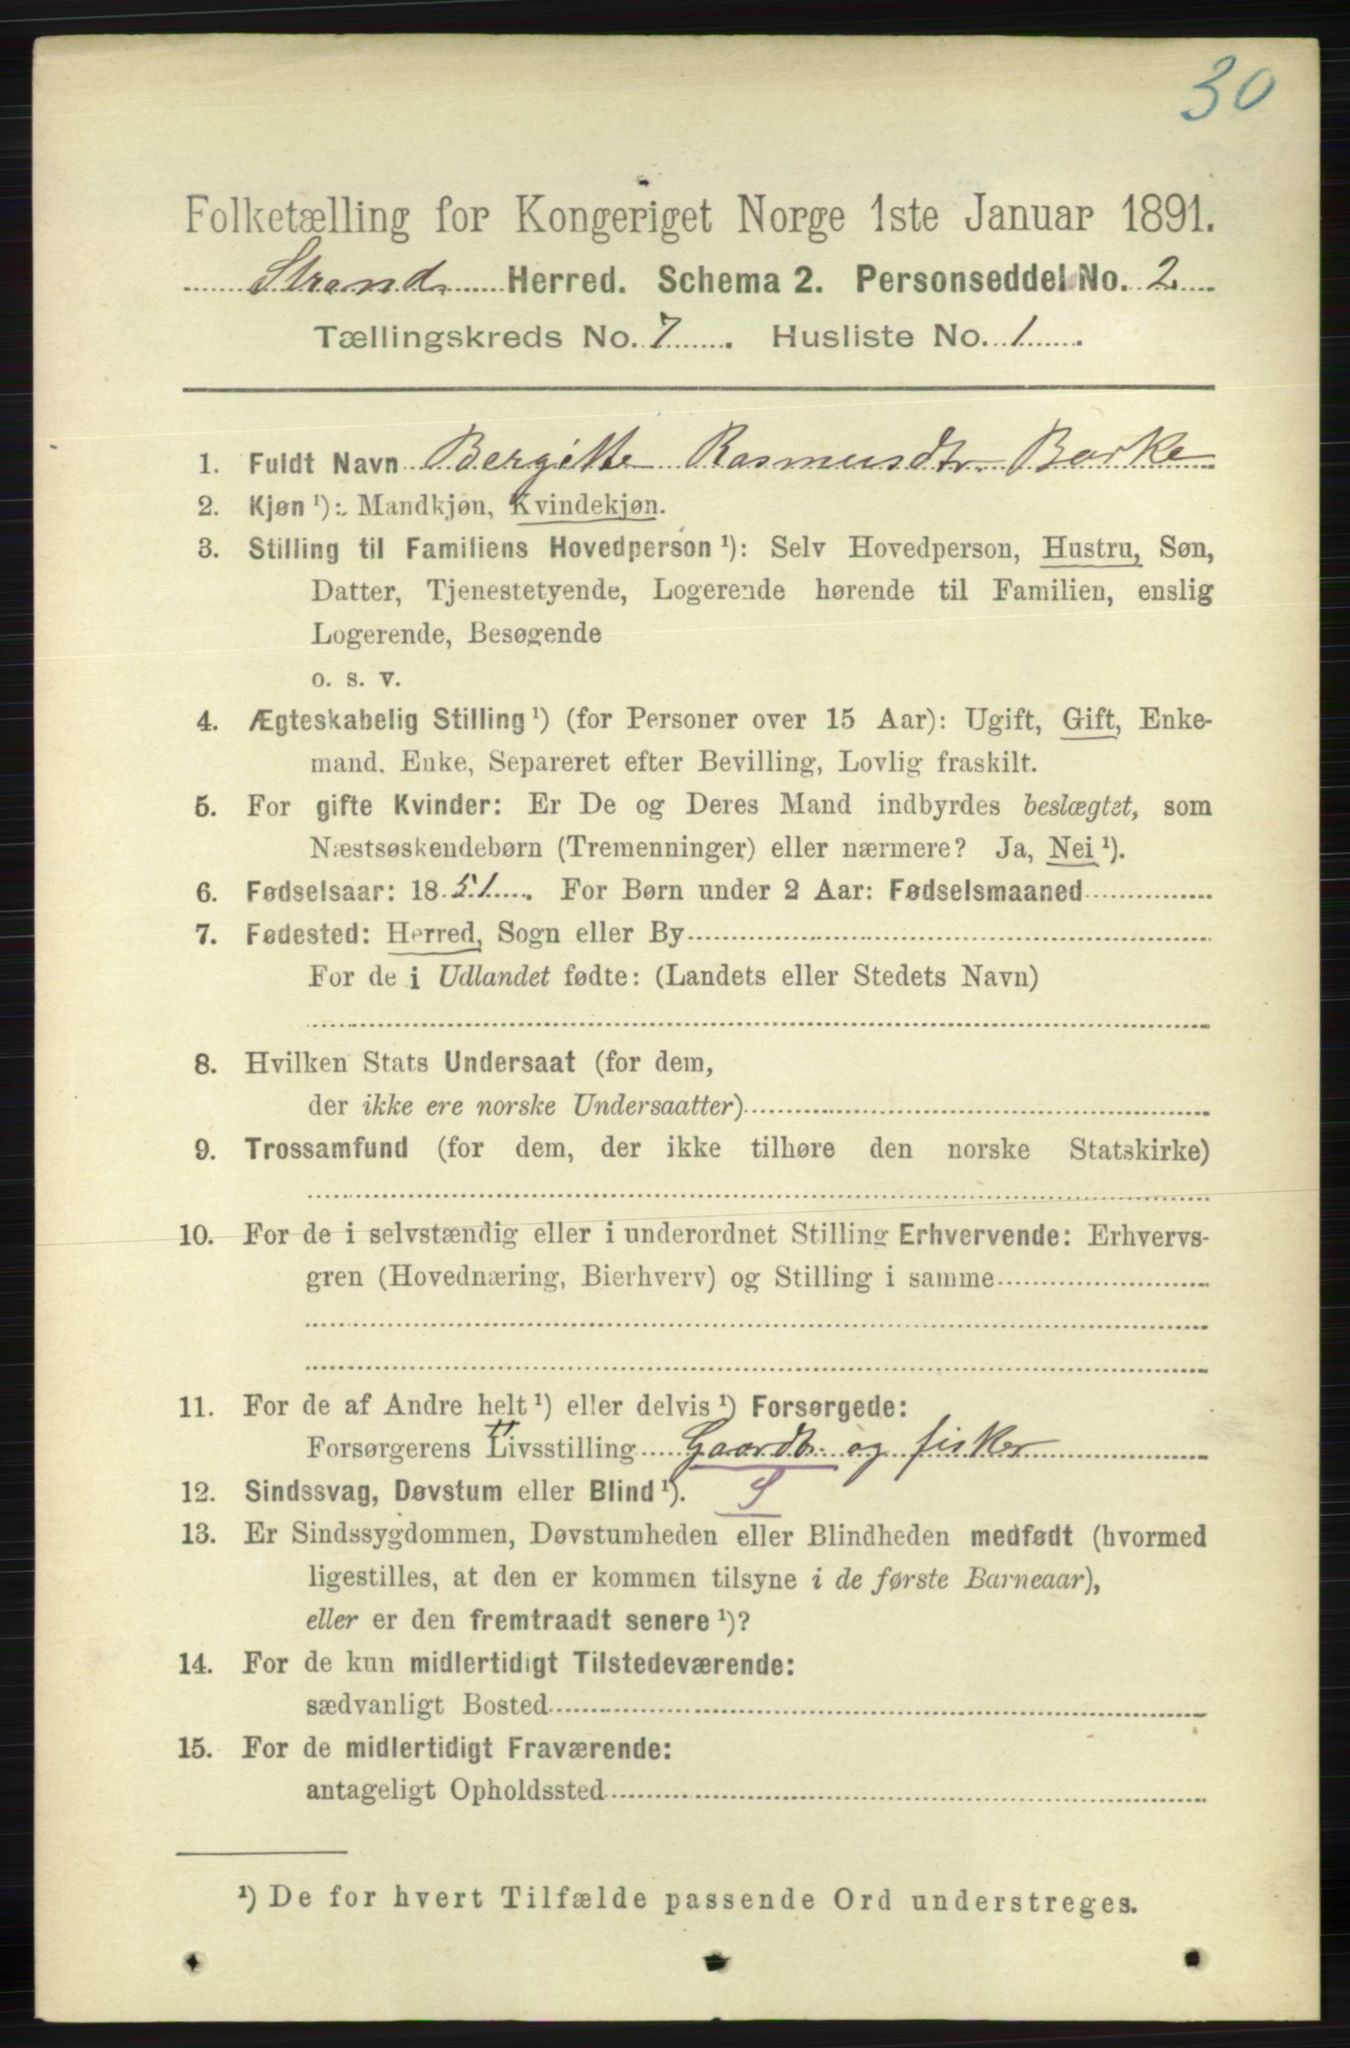 30
Folketælling for Kongeriget Norge 1ste Januar 1891.
Strand Herred. Schema 2. Personseddel No. 2
Tællingskreds No. 7. Husliste No. 1.
1. Fuldt Navn Bergitte Rasmusdtr. Barke
2. Kjøn ¹): Mandkjøn, Kvindekjøn.
3. Stilling til Familiens Hovedperson ¹): Selv Hovedperson, Hustru, Søn,
Datter, Tjenestetyende, Logerende hørende til Familien, enslig
Logerende, Besøgende
o. s. v.
4. Ægteskabelig Stilling ¹) (for Personer over 15 Aar): Ugift, Gift, Enke-
mand, Enke, Separeret efter Bevilling, Lovlig fraskilt.
5. For gifte Kvinder: Er De og Deres Mand indbyrdes beslægtet, som
Næstsøskendebørn (Tremenninger) eller nærmere? Ja, Nei ¹).
6. Fødselsaar: 1851. For Børn under 2 Aar: Fødselsmaaned
7. Fødested: Herred, Sogn eller By
For de i Udlandet fødte: (Landets eller Stedets Navn)
8. Hvilken Stats Undersaat (for dem,
der ikke ere norske Undersaatter)
9. Trossamfund (for dem, der ikke tilhøre den norske Statskirke)
10. For de i selvstændig eller i underordnet Stilling Erhvervende: Erhvervs-
gren (Hovednæring, Bierhverv) og Stilling i samme
11. For de af Andre helt ¹) eller delvis ¹) Forsørgede:
Forsørgerens Livsstilling Gaardb. og fisker
12. Sindssvag, Døvstum eller Blind ¹). S
13. Er Sindssygdommen, Døvstumheden eller Blindheden medfødt (hvormed
ligestilles, at den er kommen tilsyne i de første Barneaar),
eller er den fremtraadt senere ¹)?
14. For de kun midlertidigt Tilstedeværende:
sædvanligt Bosted
15. For de midlertidigt Fraværende:
antageligt Opholdssted
¹) De for hvert Tilfælde passende Ord understreges.